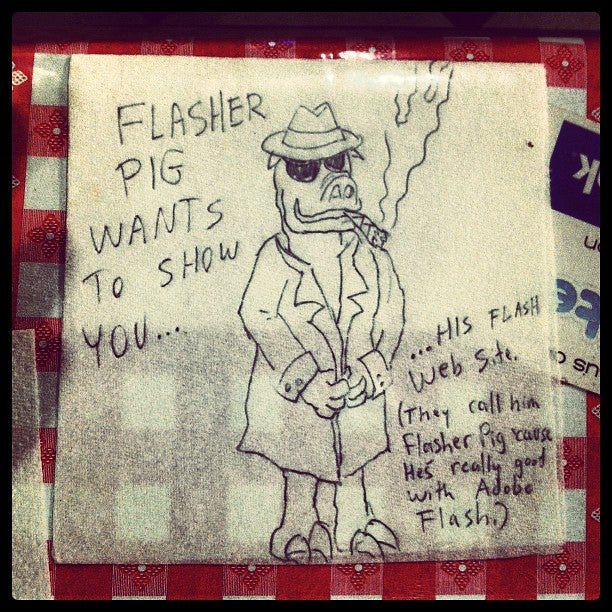 FLASHER
PIG
WANTS
TO SHOW
YOU...
...HIS FLASH
Web Site.
(They call him
Flasher Pig 'cause
He's really good
with Adobe
Flash.)